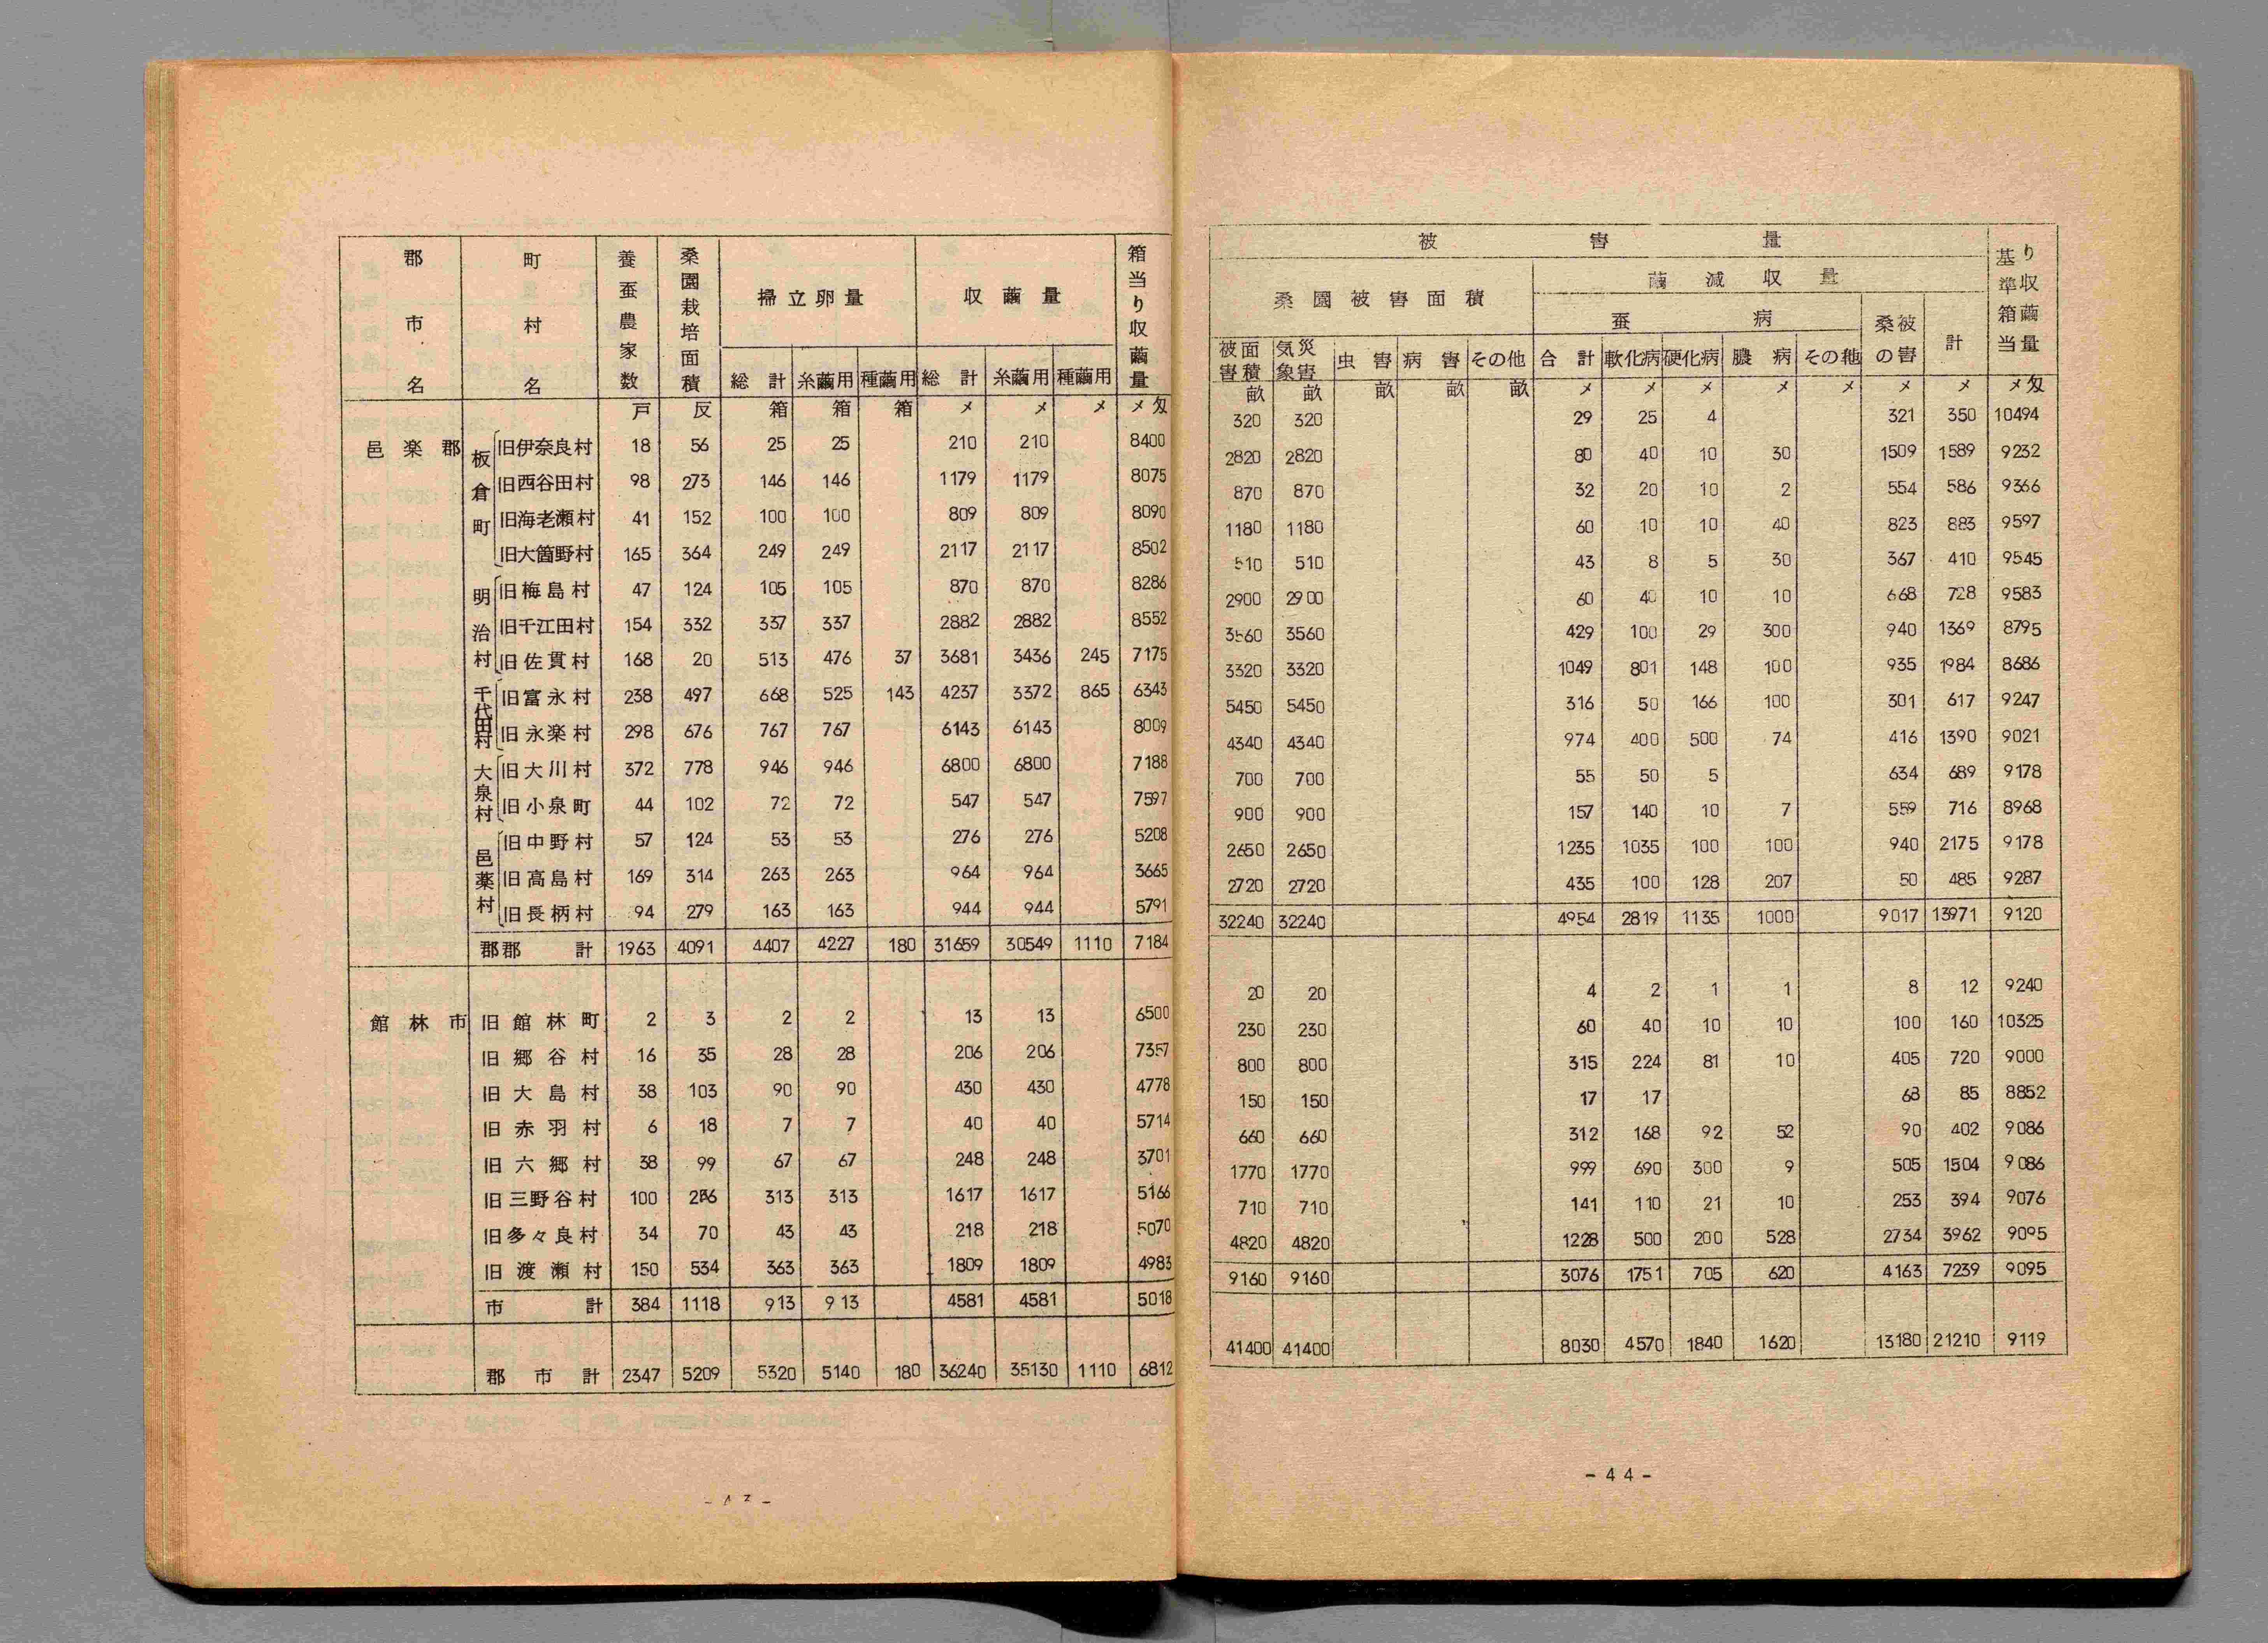 郡市名 町村名 養蚕農家数 桑園栽培面積 掃立卵量 収繭量 箱当り収繭量
総計 糸繭用 種繭用 総計 糸繭用 種繭用
戸 反 箱 箱 箱 メ メ メ メ匁
邑楽郡 板倉町 旧伊奈良村 18 56 25 25 210 210 8400
旧西谷田村 98 273 146 146 1179 1179 8075
旧海老瀬村 41 152 100 100 809 809 8090
旧大箇野村 165 364 249 249 2117 2117 8502
明治村 旧梅島村 47 124 105 105 870 870 8286
旧千江田村 154 332 337 337 2882 2882 8552
旧佐貫村 168 20 513 476 37 3681 3436 245 7175
千代田村 旧富永村 238 497 668 525 143 4237 3372 865 6343
旧永楽村 298 676 767 767 6143 6143 8009
大泉村 旧大川村 372 778 946 946 6800 6800 7188
旧小泉町 44 102 72 72 547 547 7597
邑薬村 旧中野村 57 124 53 53 276 276 5208
旧高島村 169 314 263 263 964 964 3665
旧長柄村 94 279 163 163 944 944 5791
郡郡計 1963 4091 4407 4227 180 31659 30549 1110 7184
館林市 旧館林町 2 3 2 2 13 13 6500
旧郷谷村 16 35 28 28 206 206 7357
旧大島村 38 103 90 90 430 430 4778
旧赤羽村 6 18 7 7 40 40 5714
旧六郷村 38 99 67 67 248 248 3701
旧三野谷村 100 256 313 313 1617 1617 5166
旧多々良村 34 70 43 43 218 218 5070
旧渡瀬村 150 534 363 363 1809 1809 4983
市計 384 1118 913 913 4581 4581 5018
郡市計 2347 5209 5320 5140 180 36240 35130 1110 6812
被害量 基準箱当り収繭量
桑園被害面積 繭減収量
蚕病 桑の被害 計
被害面積 気象災害 虫害 病害 その他 合計 軟化病 硬化病 膿病 その他
畝 畝 畝 畝 畝 メ メ メ メ メ メ メ メ匁
320 320 29 25 4 321 350 10494
2820 2820 80 40 10 30 1509 1589 9232
870 870 32 20 10 2 554 586 9366
1180 1180 60 10 10 40 823 883 9597
510 510 43 8 5 30 367 410 9545
2900 2900 60 40 10 10 668 728 9583
3560 3560 429 100 29 300 940 1369 8795
3320 3320 1049 801 148 100 935 1984 8686
5450 5450 316 50 166 100 301 617 9247
4340 4340 974 400 500 74 416 1390 9021
700 700 55 50 5 634 689 9178
900 900 157 140 10 7 559 716 8968
2650 2650 1235 1035 100 100 940 2175 9178
2720 2720 435 100 128 207 50 485 9287
32240 32240 4954 2819 1135 1000 9017 13971 9120
20 20 4 2 1 1 8 12 9240
230 230 60 40 10 10 100 160 10325
800 800 315 224 81 10 405 720 9000
150 150 17 17 68 85 8852
660 660 312 168 92 52 90 402 9086
1770 1770 999 690 300 9 505 1504 9086
710 710 141 110 21 10 253 394 9076
4820 4820 1228 500 200 528 2734 3962 9095
9160 9160 3076 1751 705 620 4163 7239 9095
41400 41400 8030 4570 1840 1620 13180 21210 9119
-44-